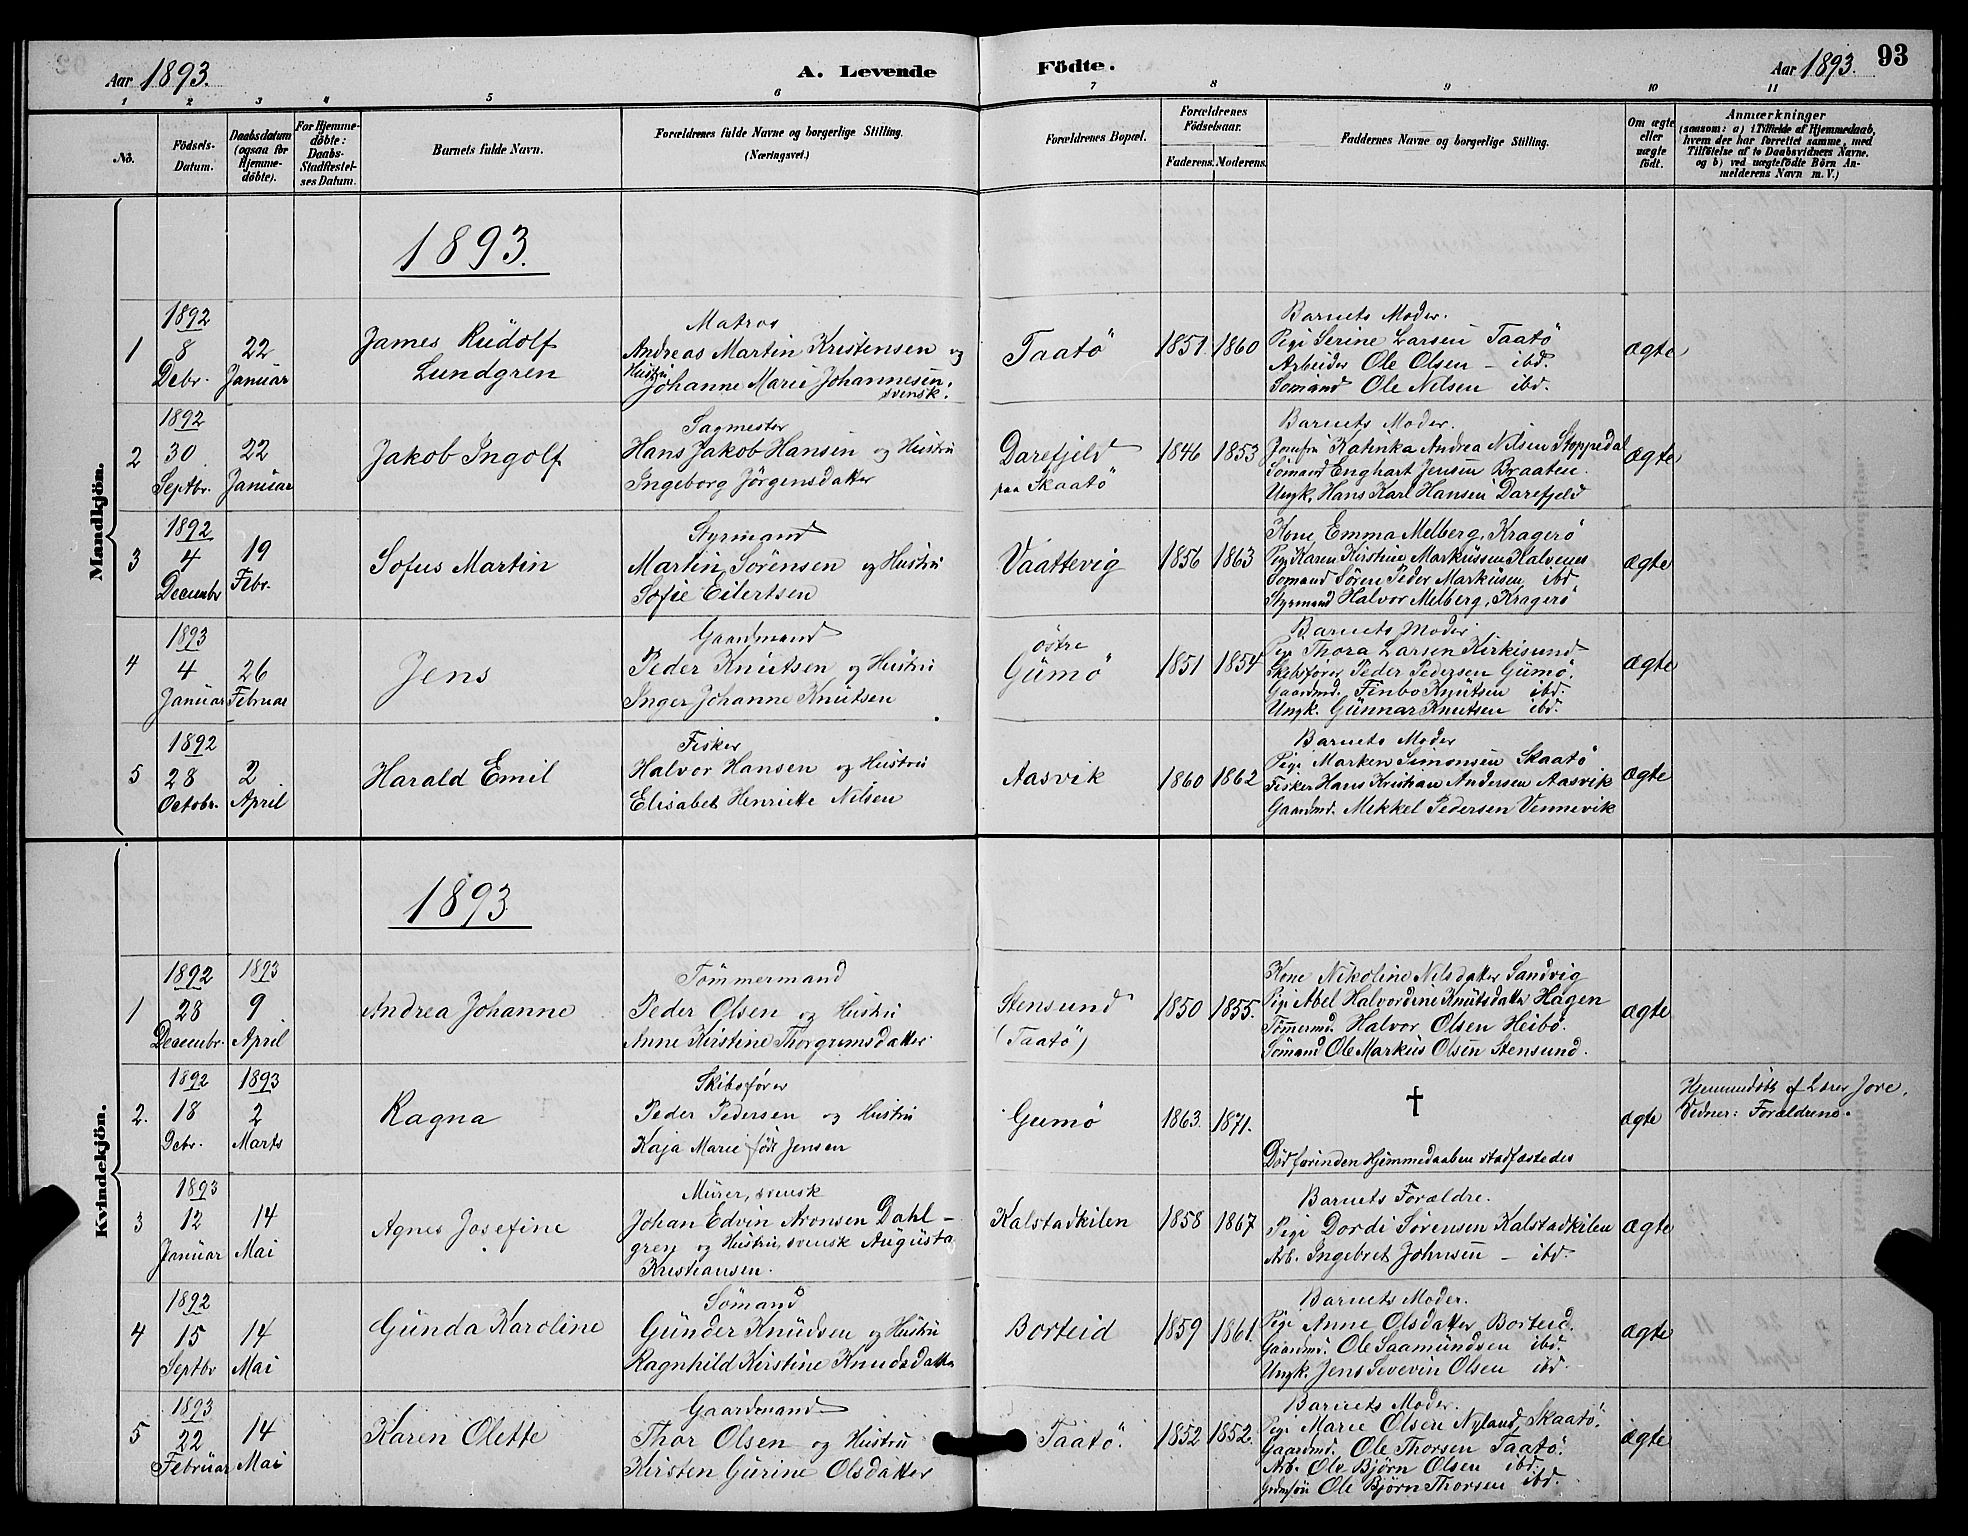 Aar 1893.
A. Levende Födte.
Aar 1893. 93
1 2 3 4 5 6 7 8 9 10 11
No.
Födsels-Datum.
Daabsdatum (ogsaa for Hjemme-döbte).
For Hjemme-döbte: Daabs-Stadfæstel-ses Datum.
Barnets fulde Navn.
Forældrenes fulde Navne og borgerlige Stilling.
(Næringsvei.)
Forældrenes Bopæl.
Forældrenes Födselsaar.
Faderens. Moderens.
Faddernes Navne og borgerlige Stilling.
Om ægte eller uægte födt.
Anmærkninger
(saasom: a) i Tilfælde af Hjemmedaab,
hvem der har forrettet samme, med
Tilföielse af to Daabsvidners Navne.
og b) ved uægtefödte Börn An-
melderens Navn m. V.)
Mandkjön.
1893.
1
1892
8
Debr.
22
Januar
James Rudolf
Lundgren
Matros
Andreas Martin Kristensen og
Hustru
Johanne Marie Johannesen,
svensk.
Taatö
1851. 1860
Barnets Moder.
Pige Serine Larsen Taatö
Arbeider Ole Olsen - ibd.
Sömand Ole Nilsen ibd.
ægte
2
1892
30
Septbr.
22
Januar
Jakob Ingolf
Sagmester
Hans Jakob Hansen og Hustru
Ingeborg Jörgensdatter
Darefjeld
paa Skaatö
1846 1853
Barnets Moder.
Jomfru Katinka Andrea Nilsen Stoppedal
Sömand Enghart Jensen Braaten.
Ungk. Hans Karl Hansen Darefjeld
ægte
3
1892
4
Decembr
19
Febr.
Sofus Martin
Styrmand
Martin Sörensen og Hustru
Sofie Eilertsen
Vaattevig
1856 1863
Kone Emma Melberg, Kragerö
Pige Karen Kirstine Markussen Halvenes
Sömand Sören Peder Markusen ibd
Styrmand Halvor Melberg, Kragerö
ægte
4
1893
4
Januar
26
Februar
Jens
Gaardmand
Peder Knutsen og Hustru
Inger Johanne Knutsen
östre
Gumö
1851 1854
Barnets Moder
Pige Thora Larsen Kirkesund
Skibsförer Peder Pedersen Gumö.
Gaardmd. Finbo Knutsen ibd.
Ungk. Gunnar Knutsen ibd.
ægte
5
1892
28
Octobr.
2
April
Harald Emil
Fisker
Halvor Hansen og Hustru
Elisabet Henriette Nilsen
Aasvik
1860 1862
Barnets Moder
Pige Marken Simonsen Skaatö
Fisker Hans Kristian Andersen Aasvik
Gaardmd. Mekkel Pedersen Vennevik
ægte
Kvindekjön.
1893
1
1892
28
Decembr.
1893
9
April
Andrea Johanne
Tömmermand
Peder Olsen og Hustru
Anne Kirstine Thorgrimsdatter
Stensund
(Taatö)
1850 1855.
Kone Nikoline Nilsdatter Sandvig
Pige Abel Halvordine Knutsdatter Hagen
Tömmermd. Halvor Olsen Heibö.
Sömand Ole Markus Olsen Stensund.
ægte
2.
1892
18
Debr.
1893
2
Marts
Ragna
Skibsförer
Peder Pedersen og Hustru
Kaja Marie född Jensen
Gumö
1863. 1871.
†
Död forinden Hjemmedaaben stadfæstedes
ægte
Hjemmedöbt af Lærer Jore.
Vidner: Forældrene.
3
1893
12
Januar
14
Mai
Agnes Josefine
Murer, svensk
Johan Edvin Aronsen Dahl-
gren og Hustru, svensk Augusta
Kristiansen.
Kalstadkilen
1858 1867
Barnets Forældre.
Pige Dordi Sörensen Kalstadkilen
Arb. Ingebret Johnsen - ibd.
ægte
4
1892
15
Septbr
14
Mai
Gunda Karoline
Sömand
Gunder Knudsen og Hustru
Ragnhild Kirstine Knudsdatter
Borteid
1859 1861.
Barnets Moder.
Pige Anne Olsdatter Borteid.
Gaardmd. Ole Saamundsen ibd.
Ungk. Jens Severin Olsen ibd.
ægte
5
1893
22
Februar
14
Mai
Karen Olette
Gaardmand
Thor Olsen og Hustru
Kirsten Gurine Olsdatter
Taatö.
1852 1852.
Barnets Moder.
Pige Marie Olsen Nyland, Skaatö.
Gaardmd. Ole Thorsen Taatö.
Arb. Ole Björn Olsen ibd.
Ole Björn Thorsen ibd.
ægte